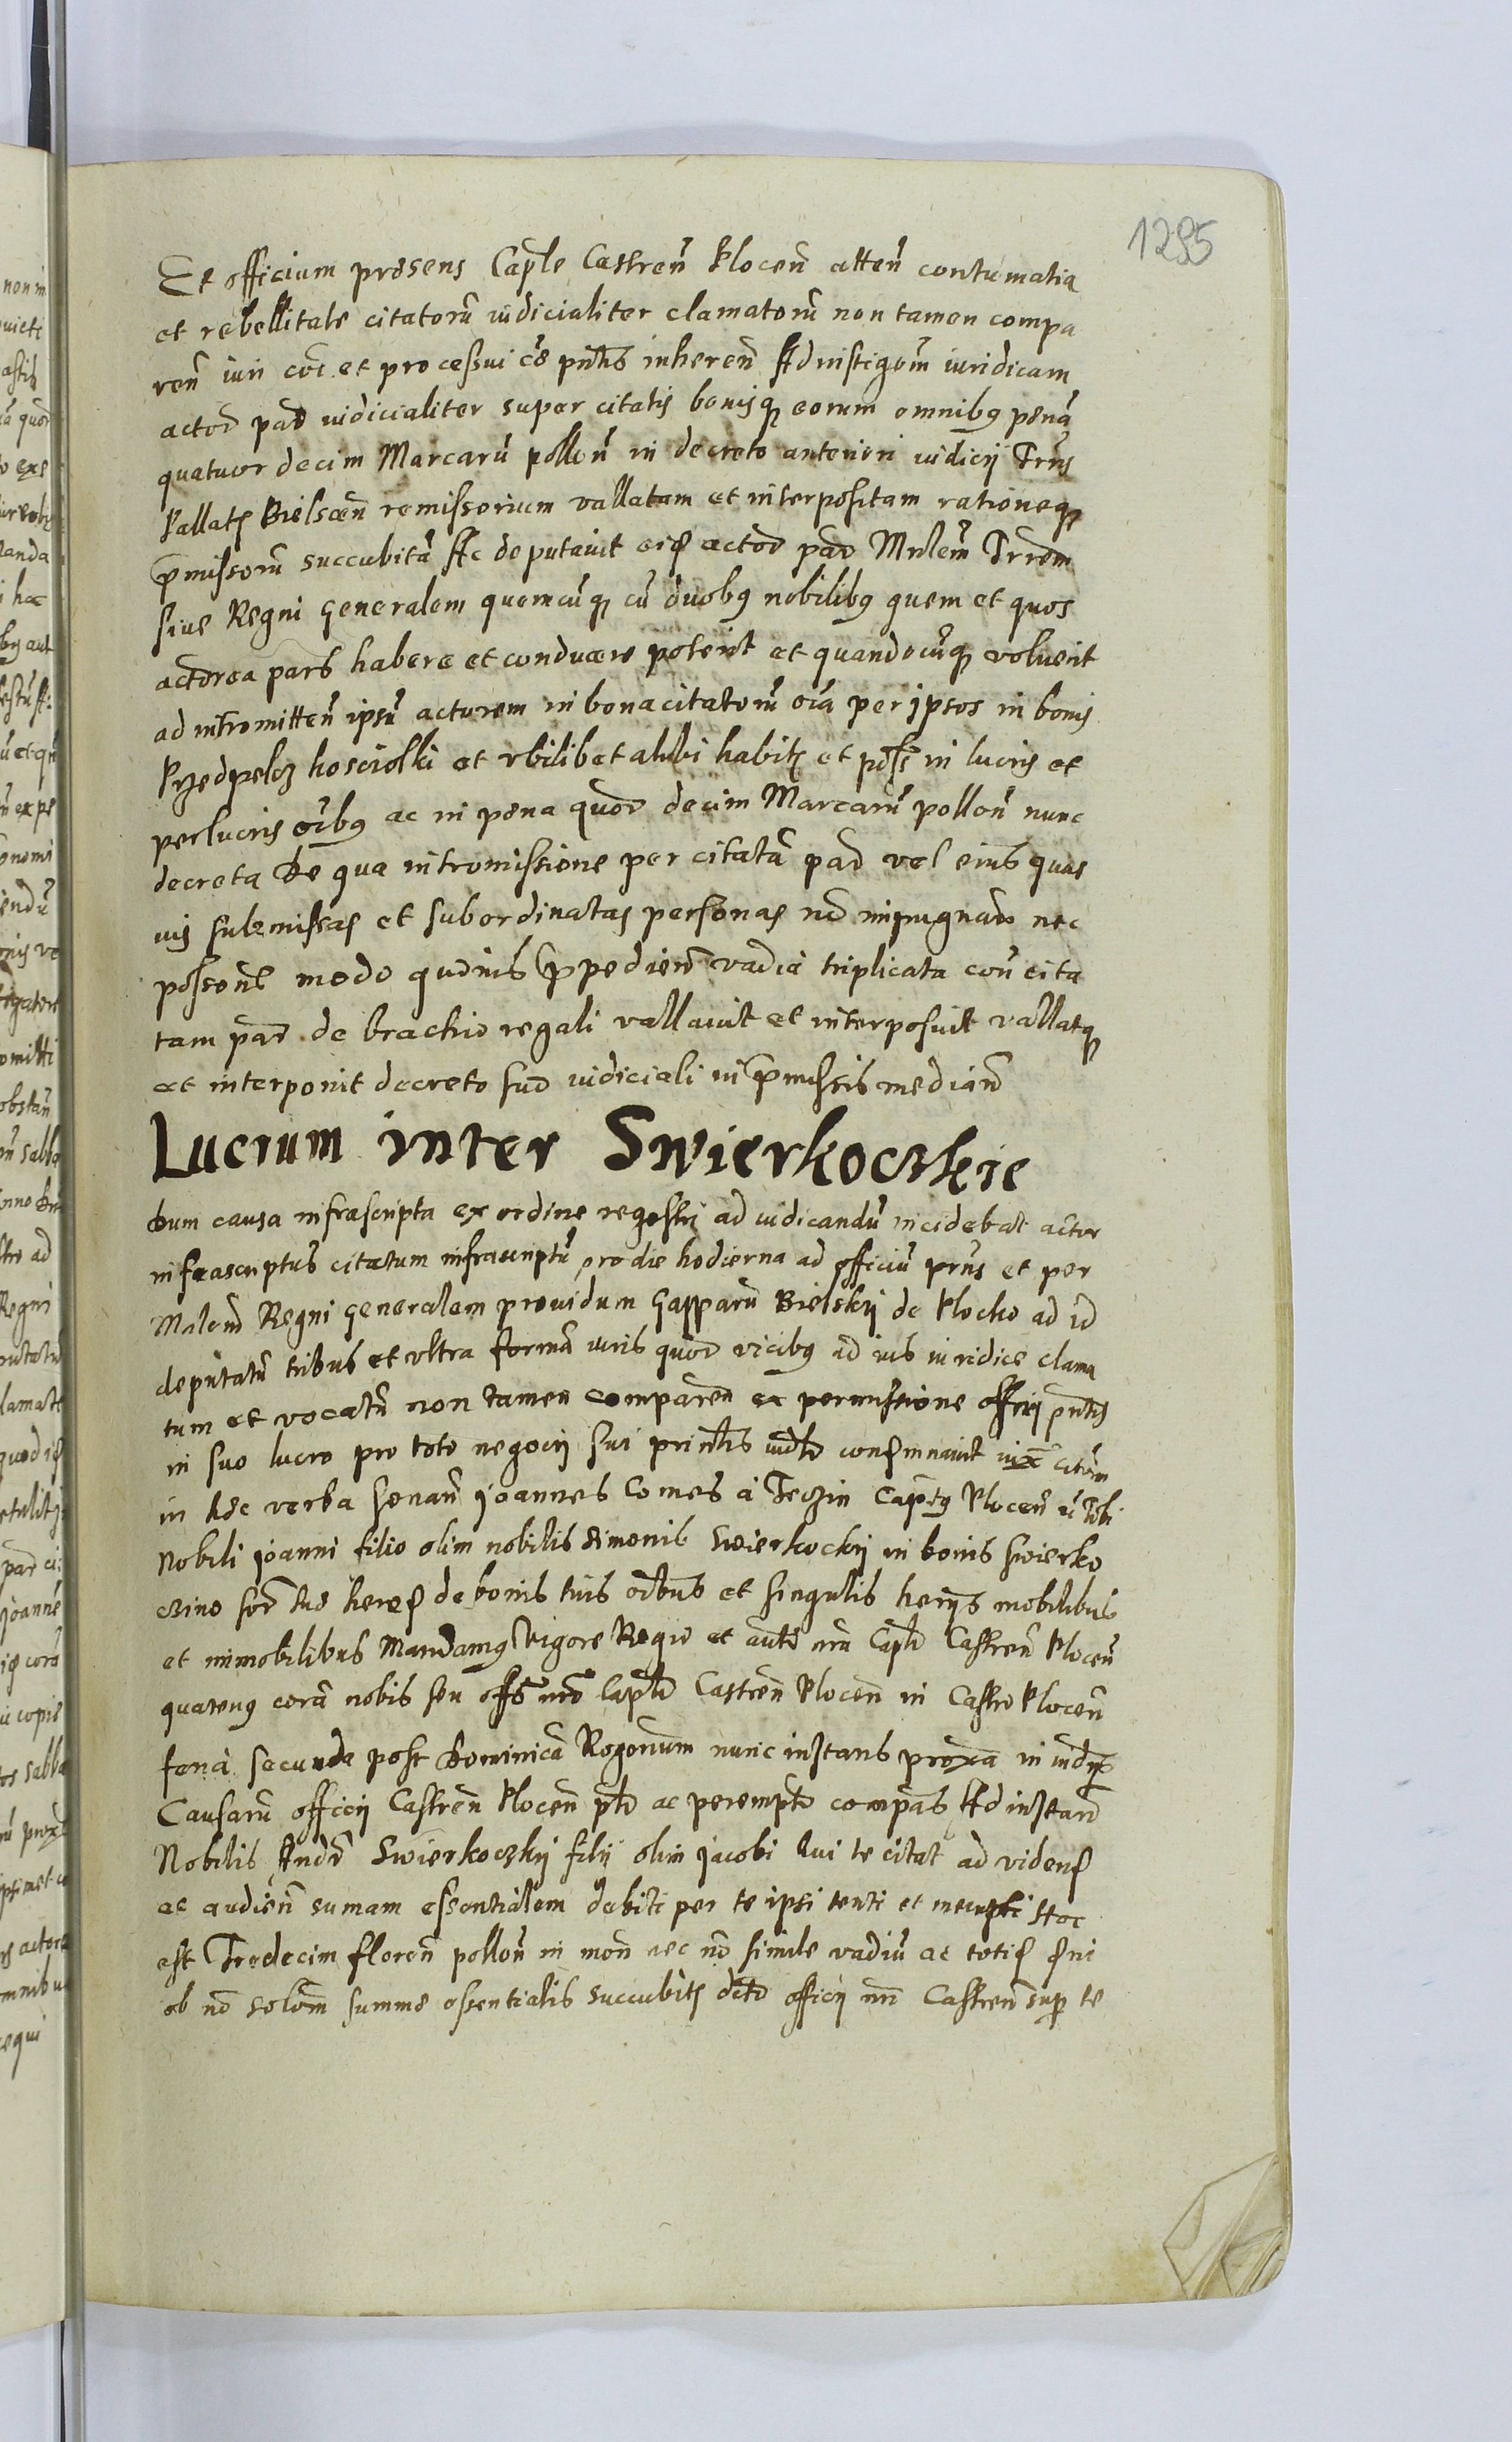 1285
Et officium presens Caple CastreñPloceñ atteñ contumatia
et rebellitate citatorũ iudicialiter clamatorũ non tamen compa
reñ iuri coi et processui cᷓe pñtis inhereñ Ad instigoem iuridicam
actor par iudicialiter super citatis bonisq eorum omnibq penã
quatuor decim Marcarũ polloñ in decreto anteriori iudicij Trris
Pallatz Bielsceñ remissorium vallatam et interpositam rationeq
pmissorũ succubitã Ac deputavit eid actor par Mnlem Trrem
sive Regni Generalem quemcũq cũ duobq nobilibq quem et quos
actorea pars habere et conducere poterit et quandocũq voluerit
ad intromitteñ ipsũ actorem in bona citatorũ oia per ipsos in bonis
Przedpelcz kosciolki et vbilibet alibi habitz et poss in lucris et
perlucris oibq ac in pena quor decim Marcarũ polloñ nunc
decreta De qua intromissione per citatã par vel eius quas
vis submissas et subordinatas personas no impugnari nec
possone modo quovis ppedieñ vadia triplicata coñ cita
tam par de brachio regali vallavit et interposuit vallatq
et interponit decreto suo iudiciali in pmissis mediañ
Lucrum inter Swierkoczkie
Dum causa infrascripta ex ordine regestri ad iudicandũ incidebat actor
infrascriptus citatum infrascriptũ pro die hodierna ad officiũ prñs et per
Mnlem Regni Generalem providum Gasparũ Bielskij de Plocko ad id
deputatũ tribus et vltra formã iuris quor vicibq ad ius iuridice clama
tum et vocatũ non tamen compareñ ex permissione officij pñtis
in suo lucro pro toto negocij sui pñtis iudlr condmnavit iuxᷓ citõem
in hec verba sonañ Joannes Comes à Teczin Captq Ploceñ ũ Tibi
Nobili Joanni filio olim nobilis Simonis Swierkockij in bonis Swierko
czino sor tue hered de bonis tuis oibus et singulis herijs mobilibus
et immobilibus Mandamq Vigore Regio et aute nra Capli Castreñ Ploceñ
quatenq corã nobis seu offo nro Capli Castreñ Ploceñ in Castro Ploceñ
feria secunda post Dominicã Rogonum nunc instans proxa in iudijs
Causarũ officij Castreñ Ploceñ plr ac peremptr compas Ad instañ
Nobilis Andr Swierkoczkij filij olim Jacobi Qui te citat ad videnf
ac audieñ sumam essentialem debiti per te ipsi tenti et Hoc
est Tredecim floreñ polloñ in moñ nec no simile vadiũ ac totid
ob no solõem summe essentialis succubitz dcto officij nri Castreñ sup te